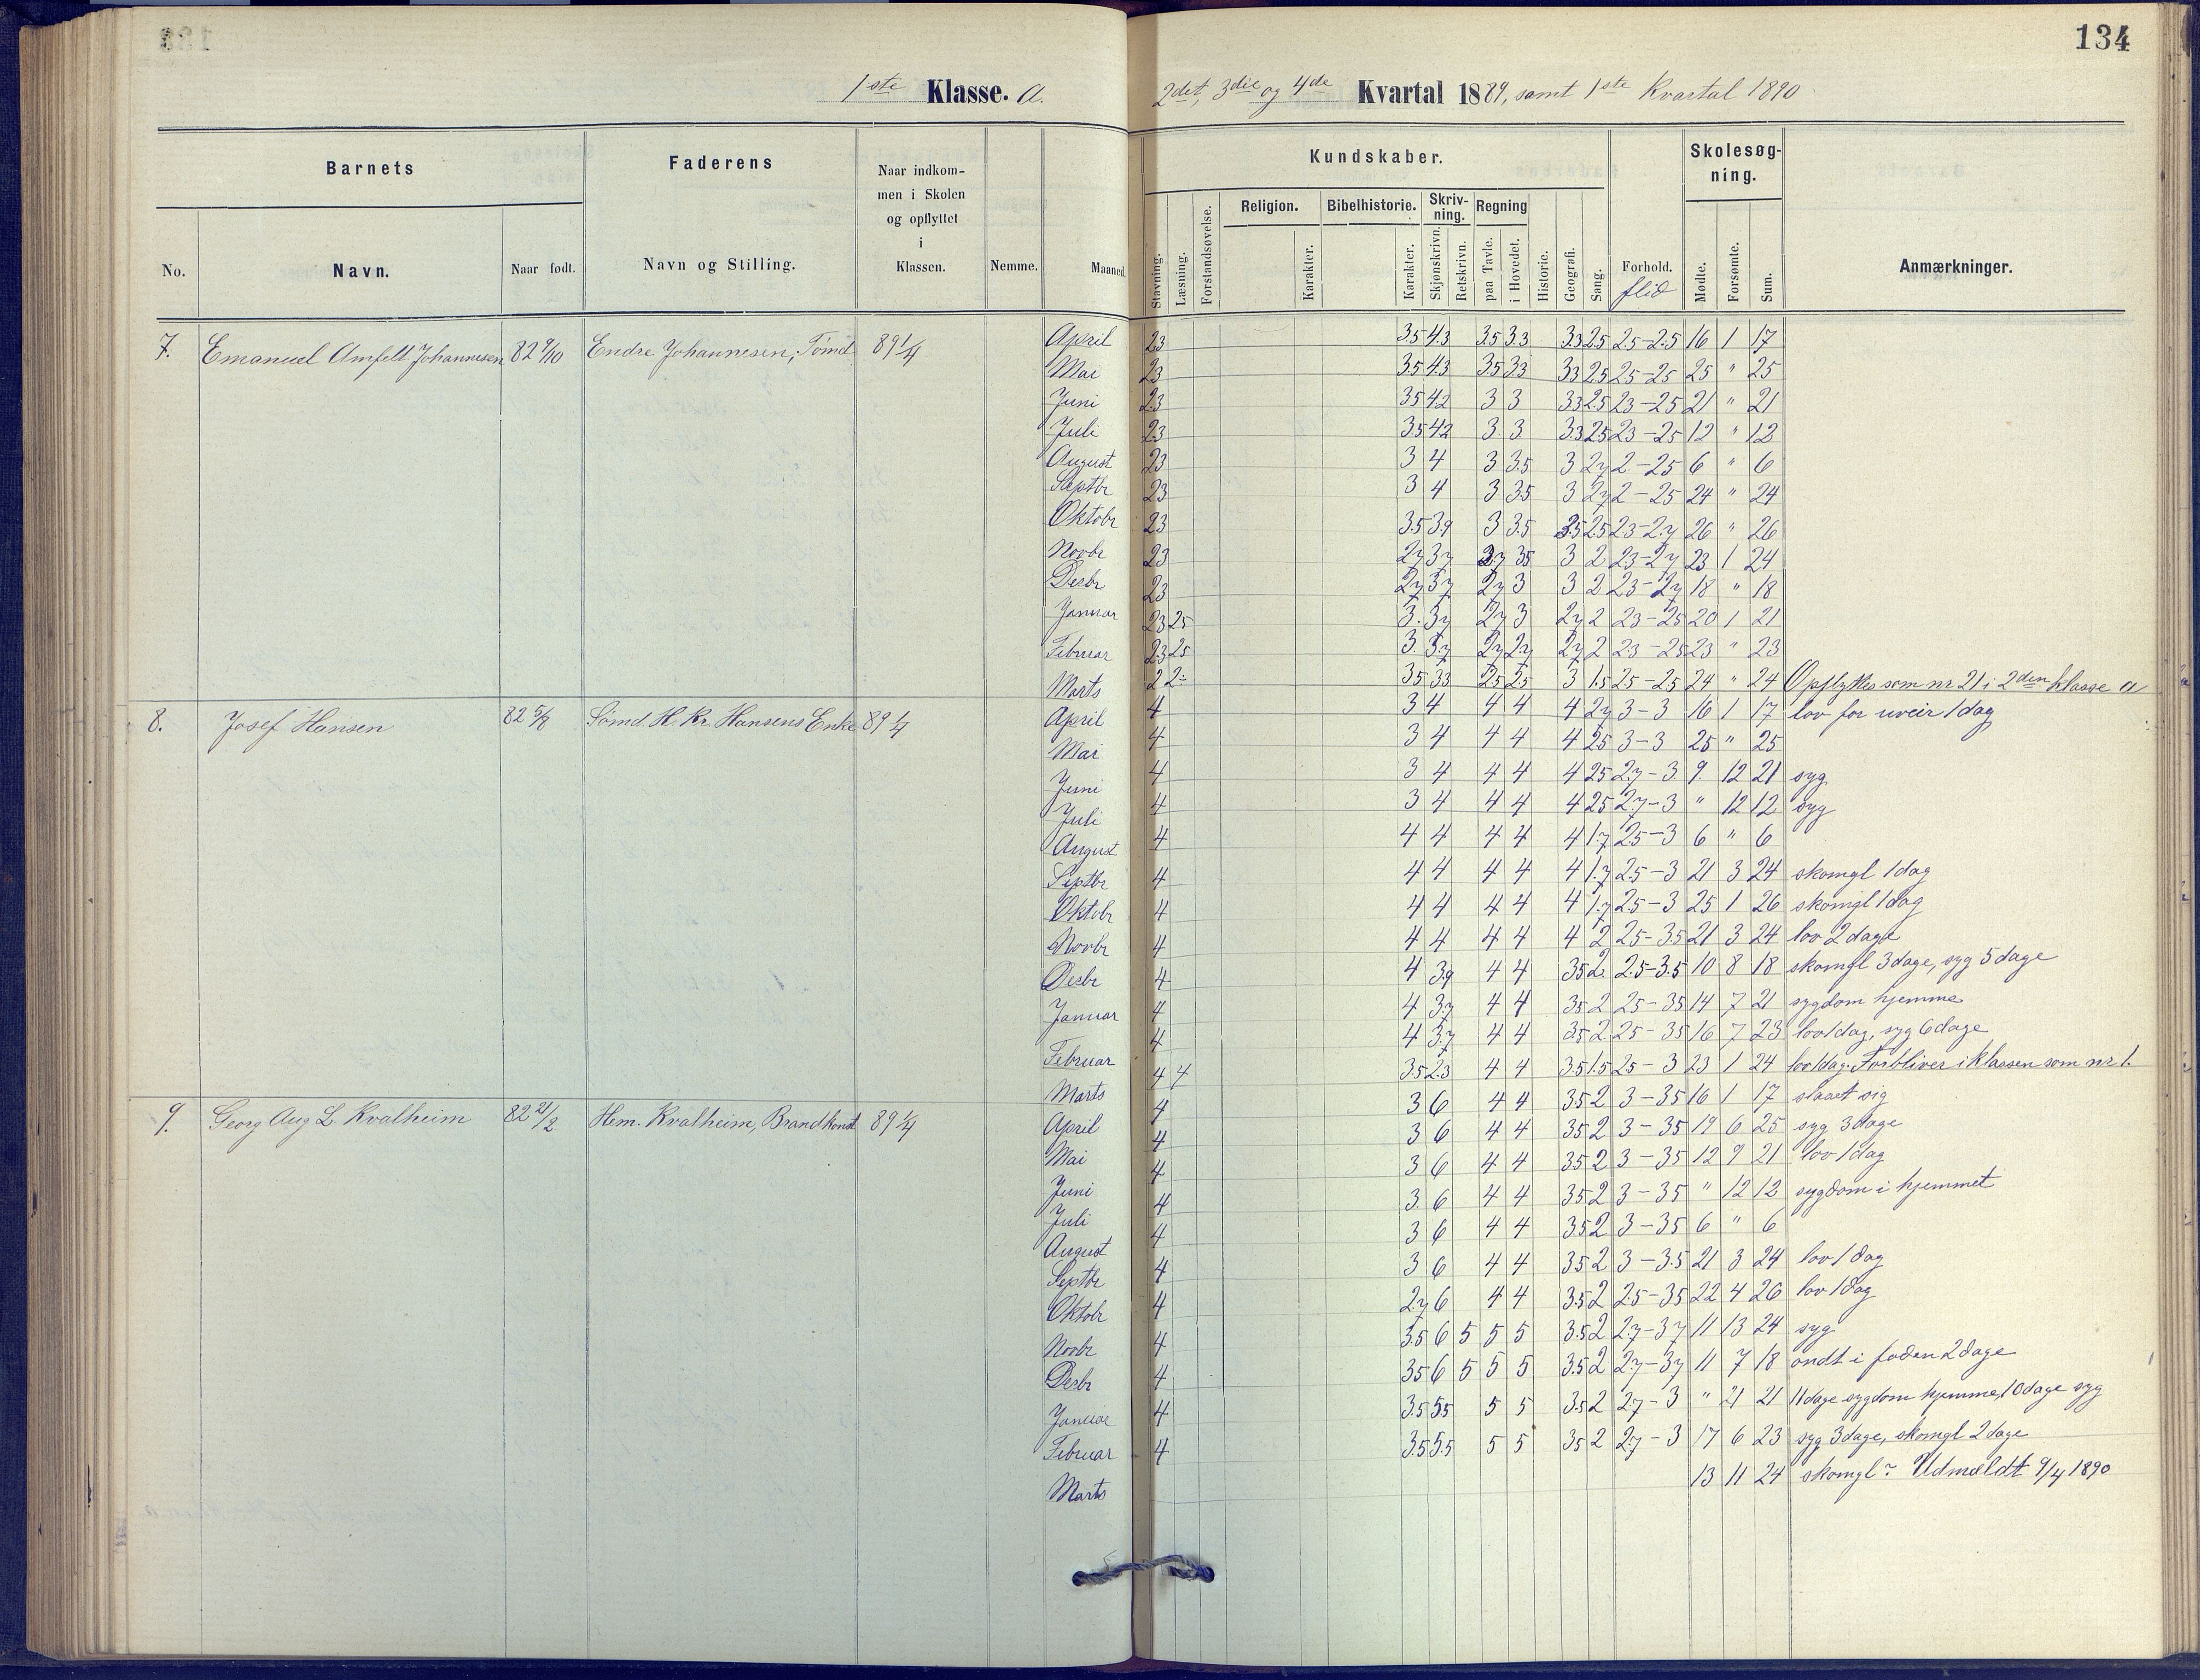 134
1ste Klasse. a. 2det, 3die og 4de Kvartal 1889, samt 1ste Kvartal 1890
Barnets Faderens Naar indkommen i Skolen og opflyttet i Klassen. Kundskaber. Skolesøgning.
Religion. Bibelhistorie. Skrivning. Regning
No. Navn. Naar født. Navn og Stilling. Nemme. Maaned. Stavning. Læsning. Forstandsøvelse. Karakter. Karakter. Skjønskrivn. Retskrivn. paa Tavle. i Hovedet. Historie. Geografi. Sang. Forhold. flid Mødte. Forsømte. Sum. Anmærkninger.
7. Emanuel Amfelt Johannesen 82 9/10 Endre Johannesen, Tømd 89 1/4 April 23 3.5 4.3 3.5 3.3 3.3 2.5 2.5-2.5 16 1 17
Mai 23 3.5 4.3 3.5 3.3 33 2.5 2.5-25 25 " 25
Juni 23 35 42 3 3 33 25 23-25 21 " 21
Juli 23 3.5 42 3. 3 3.3 25 23-25 12 " 12
August 23 3 4 3 3.5 3 27 2-25 6 " 6
Septbr 23 3 4 3 35 3 27 2-25 24 " 24
Oktobr 23 3.5 3.9 3 3.5 35 25 23-2.7 26 " 26
Novbr 23 27 37 27 35 3 2 23-27 23 1 24
Desbr 23 27 37 27 3 3 2 23-27 18 " 18
Januar 23 25 3. 37 27 3 27 2 23-25 20 1 21
Februar 23 25 3. 3.7 27 27 27 2 23-25 23 " 23
Marts 2 2- 35 33 25 25 3 1.5 25-25 24 " 24 Opflyttes som nr 21 i 2den klasse a
8. Josef Hansen 82 5/8 Sømd. H. Kr. Hansens Enke 89 1/4 April 4 3 4 4 4 4 27 3-3 16 1 17 lov for uveir 1 dag
Mai 4 3 4 4 4 4 25 3-3 25 " 25
Juni 4 3 4 4 4 4 25 2.7-3 9. 12 21 syg
Juli 4 3 4 4 4 4 25 27-3 " 12 12 syg
August 4 4 4 4 4 4 1.7 25-3 6 " 6
Septbr 4 4 4 4 4 4 1.7 25-3 21 3 24 skomgl 1 dag
Oktobr 4 4 4 4 4 4 1.7 25-3 25 1 26 skomgl 1 dag
Novbr 4 4 4 4 4 4 2 25-3.5 21 3 24 lov 2 dage
Desbr 4 4 39 4 4 35 2. 2.5-3.5 10 8 18 skomgl 3 dage, syg 5 dage
Januar 4 4 37 4 4 35 2 25-35 14 7 21 sygdom hjemme
Februar 4 4 3.7 4 4 35 2. 25-35 16 7 23 lov 1 dag, syg 6 dage
Marts 4 4 3.5 2.3 4 4 3.5 1.5 25-3 23 1 24 lov 1 dag. Forbliver i klassen som nr 1.
9. Georg Aug L. Kvalheim 82 21/2 Hem. Kvalheim, Brandkonst 89 1/4 April 4 3 6 4 4 35 2 3-35 16 1 17 slaaet sig
Mai 4 3 6 4 4 35 2 3-35 19 6 25 syg 3 dage
Juni 4 3 6 4 4 35 2 3-35 12 9 21 lov 1 dag
Juli 4 3 6 4 4 35 2 3-35 " 12 12 sygdom i hjemmet
August 4 3 6 4 4 3.5 2 3-35 6 " 6
Septbr 4 3 6 4 4 35 2 3-3.5 21 3 24 lov 1 dag
Oktobr 4 2.7 6 4 4 3.5 2 2.5-35 22 4 26 lov 1 dag
Novbr 4 3.5 6 5 5 5 3.5 2 2.7-37 11 13 24 syg
Desbr 4 35 6 5 5 5 3.5 2 27-37 11 7 18 ondt i foden 2 dage
Januar 4 3.5 5.5 5 5 3.5 2 27-3 " 21 21 11 dage sygdom hjemme, 10 dage syg
Februar 4 3.5 5.5 5 5 35 2 27-3 17 6 23 syg 3 dage, skomgl 2 dage
Marts 13 11 24 skomgl- Udmeldt 9/4 1890